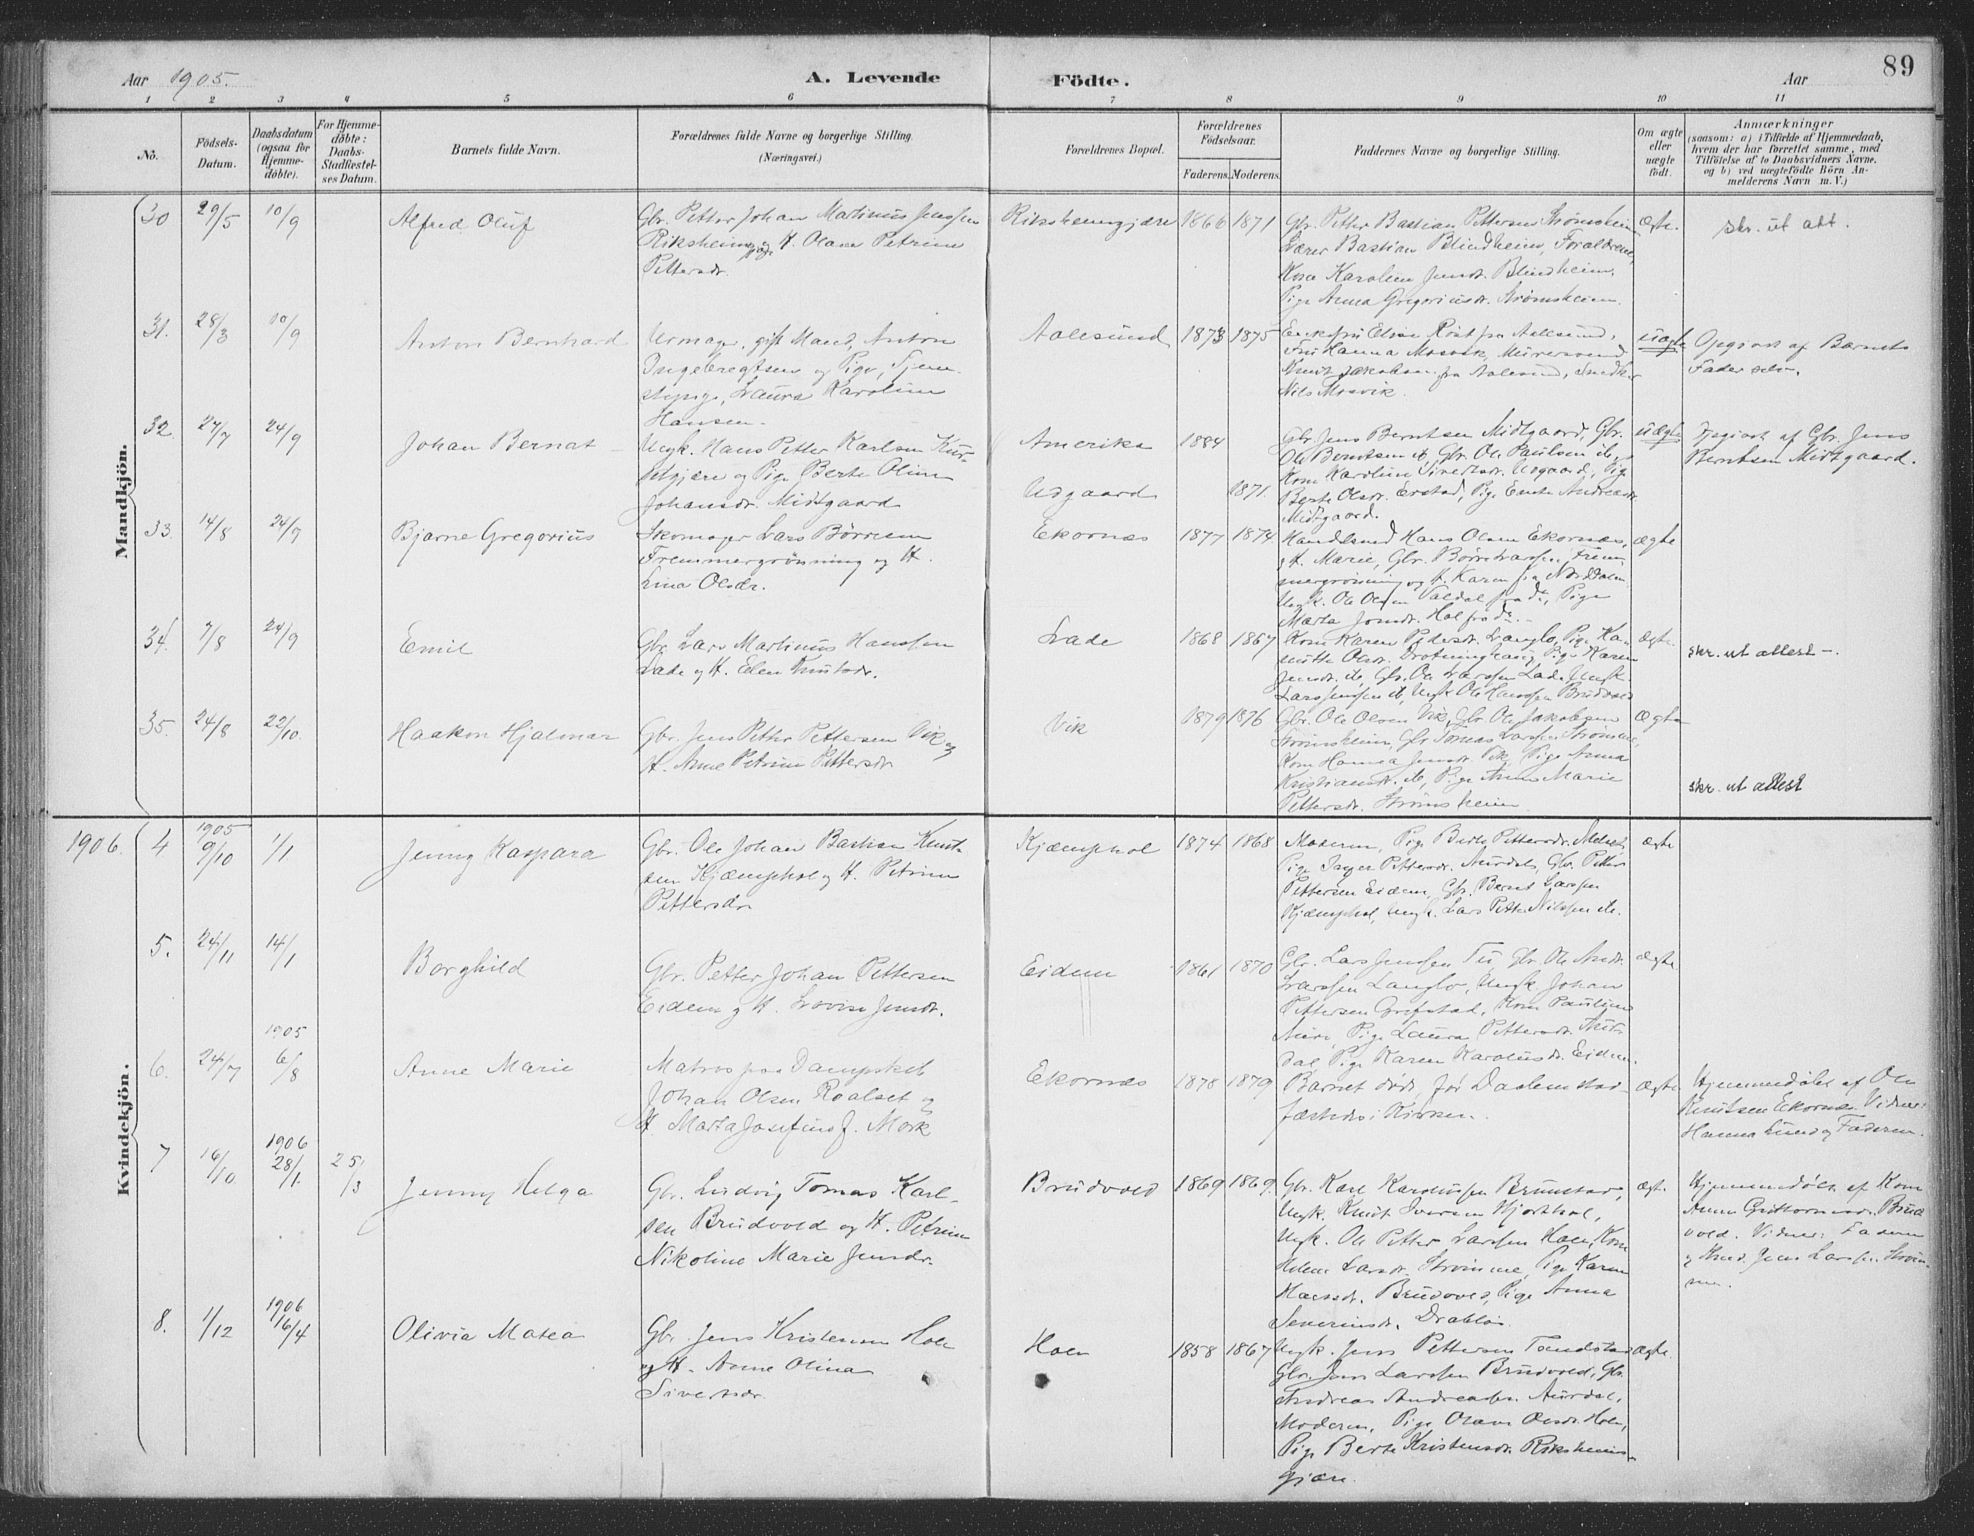 Aar 1905.
A. Levende Födte.
Aar
89
1 2 3 4 5 6 7 8 9 10 11
No.
Födsels-Datum.
Daabsdatum (ogsaa for Hjemme-döbte).
For Hjemme-döbte: Daabs-Stadfæstel-ses Datum.
Barnets fulde Navn.
Forældrenes fulde Navne og borgerlige Stilling.
(Næringsvei.)
Forældrenes Bopæl.
Forældrenes Födselsaar.
Faderens. Moderens.
Faddernes Navne og borgerlige Stilling.
Om ægte eller uægte födt.
Anmærkninger
(saasom: a) i Tilfælde af Hjemmedaab,
hvem der har forrettet samme, med
Tilföielse af to Daabsvidners Navne.
og b) ved uægtefödte Börn An-
melderens Navn m. V.)
Mandkjön.
30 29/5 10/9 Alfred Oluf
Gbr. Petter Johan Martinus Jenssen
Riksheim og H. Olave Petrine
Pettersdr.
Riksheimgjære 1866 1871
Gbr. Petter Bastian Pettersen Strømsheim
Lærer Bastian Blindheim, Forældrene,
Kone Karoline Jensdr. Blindheim.
Pige Anna Gregoriusdr. Strømsheim.
ægte.
skr. ut att.
31. 28/3 10/9 Anton Bernhard
Urmager, gift Mand, Anton
Ingebregtsen og Pige, Tjene-
stepige, Laura Karoline
Hansen.
Aalesund 1873 1875
Fru Hanna Mosvik, Murersvend
Knut Jakobsen fra Aalesund, Snedker
Nils Mosvik.
uægte
Opgivet af Barnets
Fader selv.
32 27/7 24/9 Johan Bernat
Ungk. Hans Petter Karlsen Kur-
setgjære og Pige Berte Oline
Johansdr. Midtgaard
Amerika 1884
Udgaard 1871.
Gbr. Jens Berntsen Midtgaard, Gbr.
Ole Berntsen do, Gbr. Ole Paulsen do,
Kone Karoline Sivertsdr. Udgaard, Pige
Berte Olsdr. Erstad, Pige Emte Andreasdr.
Midtgaard.
uægte
Opgivet af Gbr. Jens
Berntsen Midtgaard.
33. 14/8 24/9 Bjarne Gregorius
Skomager Lars Børresen
Fremmergrønning og H.
Lina Olsdr.
Ekornæs 1877 1874
Handelsmd Hans Olsen Ekornæs,
og H. Marie, Gbr. Børre Larssen Frem-
mergrønning og H. Karen fra Norddalen
Ungk. Ole Olsen Valdal fra do, Pige
Marta Jonsdr. Hol fra do.
ægte
34. 7/8 24/9 Emil
Gbr. Lars Martinus Hanssen
Lade og H. Elen Knutsdr.
Lade 1868 1867
Kone Karen Pedersdr. Langlo, Pige Ka-
nutte Olsdr. Drotninghaug, Pige Karen
Jensdr. do, Gbr. Ole Larssen Lade, Ungk.
Lars Jenssen do, Ungk Ole Hanssen Brudvold
ægte.
skr. ut attest -.
35. 24/8 22/10 Haakon Hjalmar
Gbr. Jens Petter Pettersen Vik og
H. Anne Petrine Pettersdr.
Vik 1879 1876
Gbr. Ole Olsen Vik, Gbr. Ole Jakobsen
Strømsheim, Gbr. Tomas Larssen Strømme,
Kone Hanna Jensdr. Vik, Pige Anna
Kristiansdr. do, Pige Anne Marie
Pettersdr. Strømsheim
ægte
skr. ut attest
1906.
Kvindekjön.
4 1905 9/10 1/1 Jenny Kaspara
Gbr. Ole Johan Bastian Knut-
sen Kjæmphol og H. Petrine
Pettersdr.
Kjæmphol 1874 1868
Moderen, Pige Berte Pettersdr. Melset,
Pige Inger Pettersdr. Aurdal, Gbr. Petter
Pettersen Eidem, Gbr. Bernt Larssen
Kjæmphol, Ungk. Lars Petter Nilssen do.
ægte
5. 24/11 14/1 Borghild
Gbr. Petter Johan Pettersen
Eidem og H. Lovise Jensdr.
Eidem 1861 1870
Gbr. Lars Jenssen Tu, Gbr. Ole Andr.
Larssen Langlo, Ungk Johan
Pettersen Grefstad, Kone Pauline
Aure, Pige Laura Pettersdr. Aur-
dal, Pige Karen Karolusdr. Eidem.
ægte
6. 24/7 1905 6/8 Anne Marie
Matros paa Dampskib
Johan Olsen Roalset og
H. Marta Josefine f. Mork
Ekornæs 1878 1879
Barnet døde før Daaben stad-
fæstedes i Kirken.
ægte
Hjemmedøbt af Ole
Knutsen Ekornæs. Vidner:
Hanna Lund og Faderen.
7 16/10 1906 28/1 25/3 Jenny Helga
Gbr. Ludvig Tomas Karl-
sen Brudvold og H. Petrine
Nikoline Marie Jensdr.
Brudvold 1869 1869.
Gbr. Karl Karolussen Brunstad,
Ungk. Knut Iversen Hjorthol,
Ungk. Ole Petter Larssen Hole, Kone
Helene Larsdr. Strømme, Pige Karen
Hansdr. Brudvold, Pige Anna
Severinsdr. Drabløs.
ægte.
Hjemmedøbt af Kone
Anne Brud-
vold. Vidner: Faderen
og Jens Larssen Strøm-
me.
8. 1/12 1906 16/4 Olivia Matea
Gbr. Jens Kristensen Hole
og H. Anne Olina
Sivertsdr.
Holen 1858 1867
Ungk. Jens Pettersen Tandstad
Gbr. Jens Larssen Brudvold, Gbr.
Andreas Andreassen Aurdal,
Moderen, Pige Olave Olsdr. Hole,
Pige Berte Kristensdr. Riksheim-
gjære.
ægte.